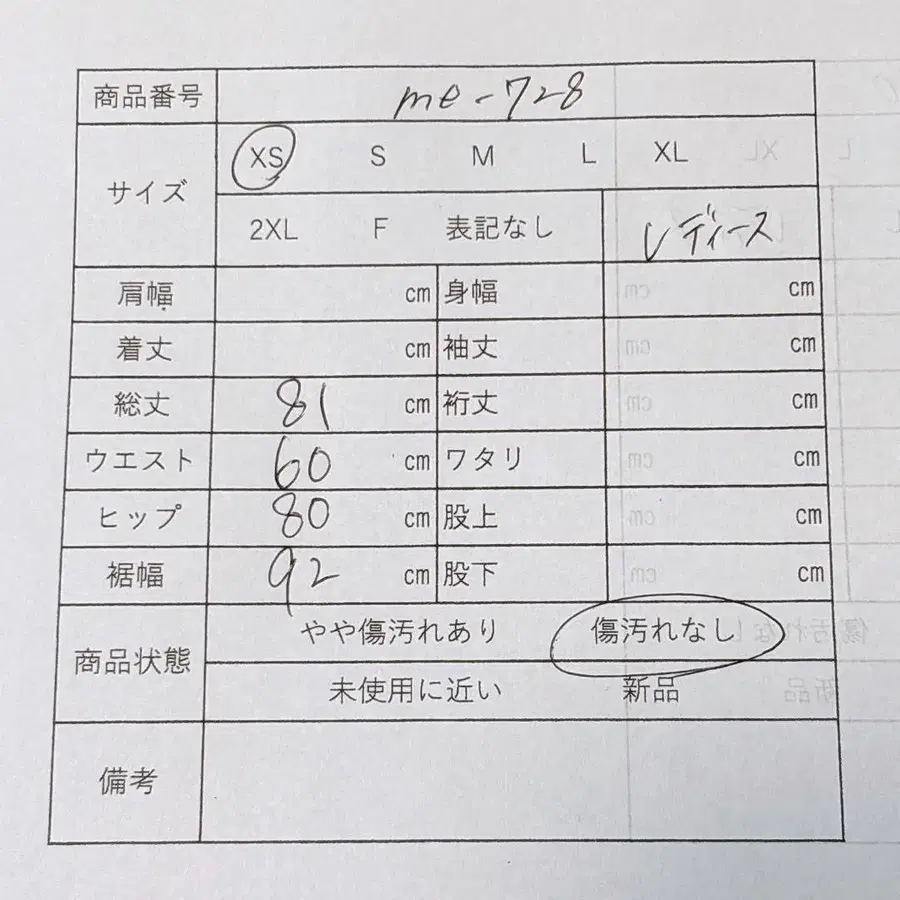 商品番号 me-728
サイズ XS S M L XL
2XL F 表記なし レディース
肩幅 cm 身幅 cm
着丈 cm 袖丈 cm
総丈 81 cm 裄丈 cm
ウエスト 60 cm ワタリ cm
ヒップ 80 cm 股上 cm
裾幅 92 cm 股下 cm
商品状態 やや傷汚れあり 傷汚れなし
未使用に近い 新品
備考